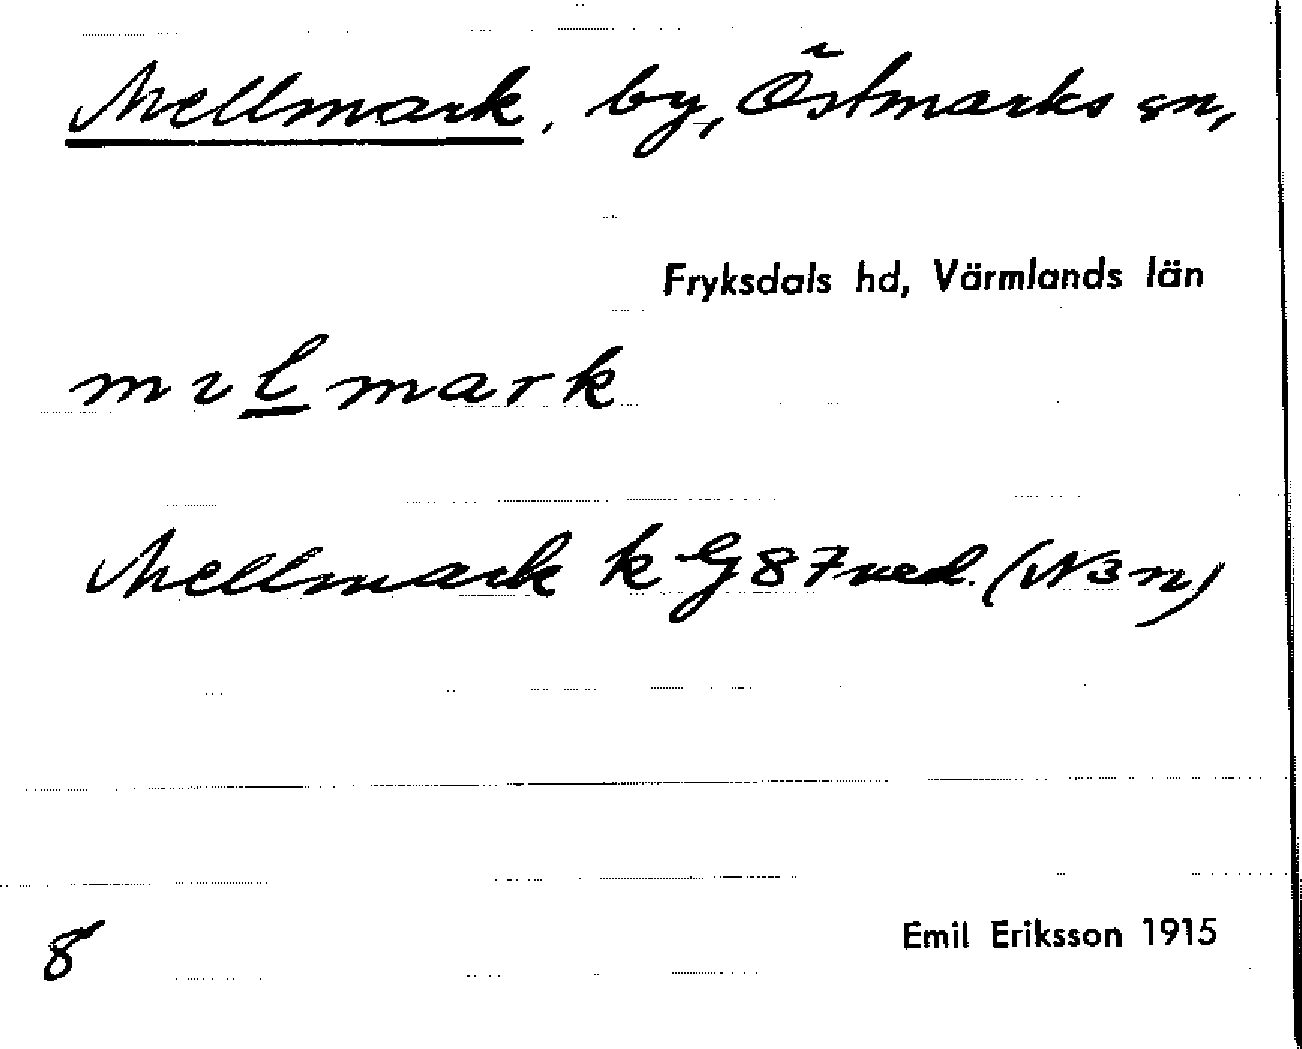 Mellmark, by, Östmarks sn,
Fryksdals hd, Värmlands län
mılmark
Mellmark k G 87 ned. (N3n)
8
Emil Eriksson 1915